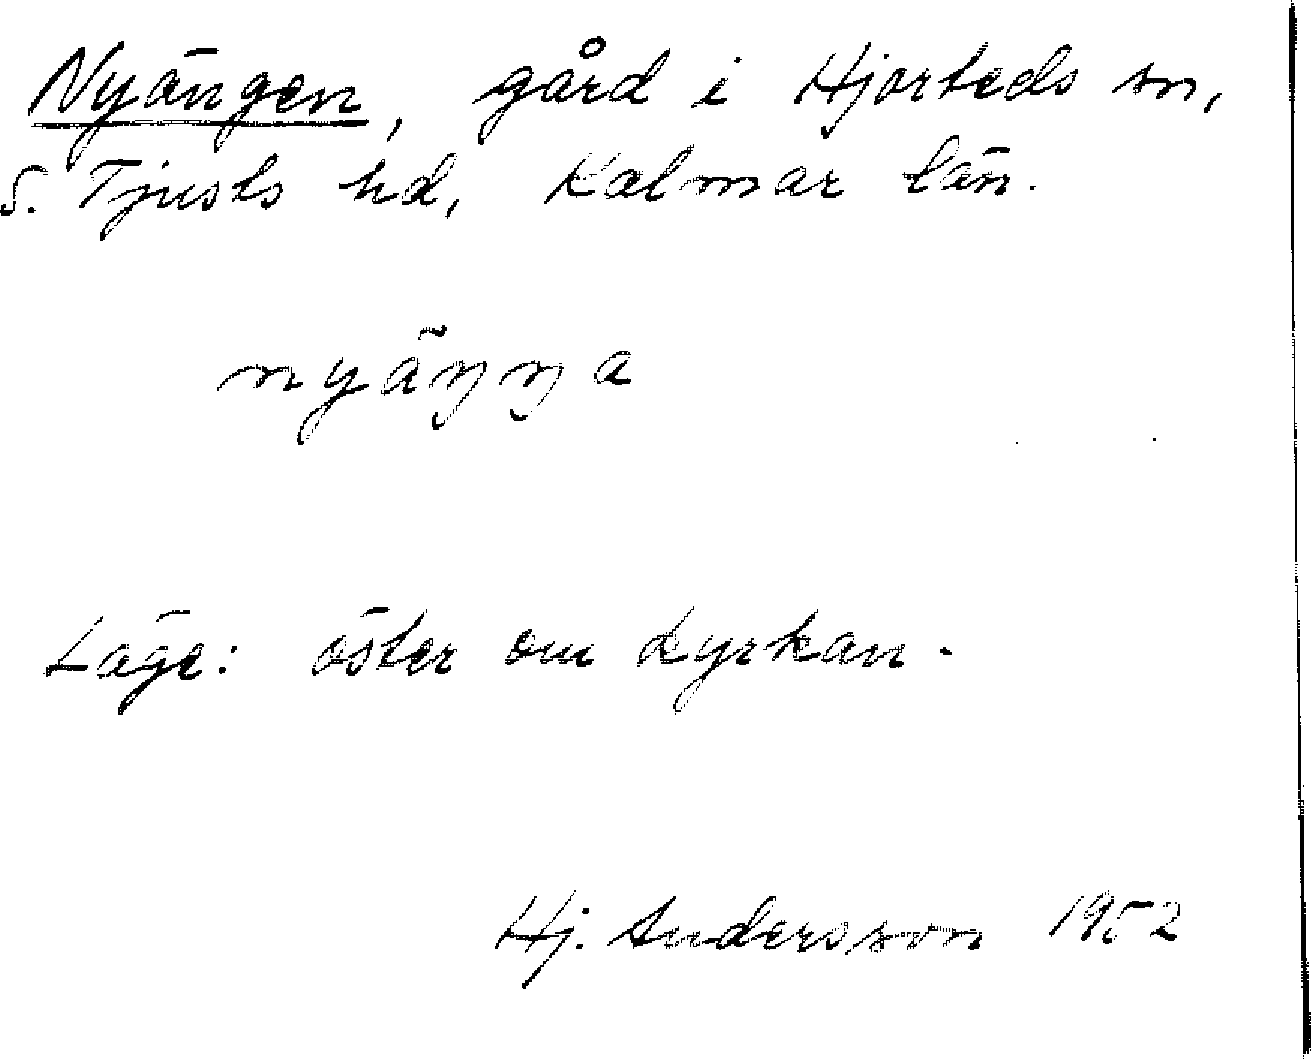 Nyängen, gård i Hjorteds sn,
S. Tjusts hd, Kalmar län.
nyäŋŋa
Läge: öster om kyrkan.
Hj. Andersson 1952